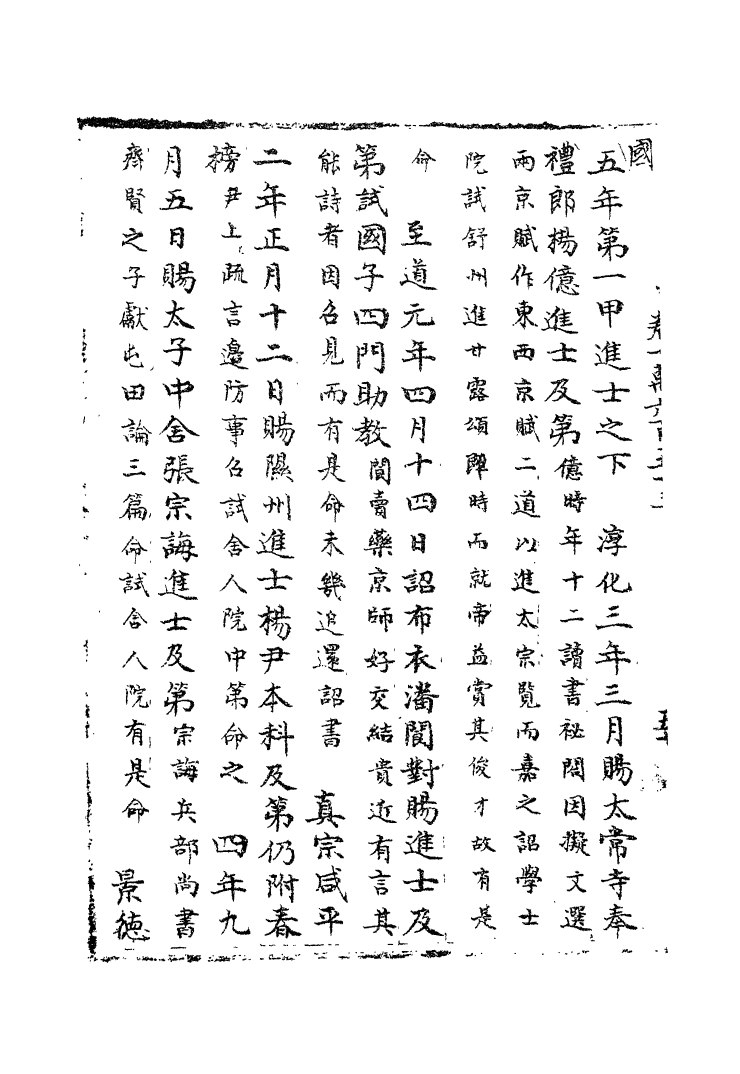 國
卷一萬六百五十三
五年第一甲進士之下　淳化三年三月賜太常寺奉
禮郎楊億進士及第億時年十二讀書祕閣因擬文選
兩京賦作東西京賦二道以進太宗覽而嘉之詔學士
院試舒州進甘露頌即時而就帝益賞其俊才故有是
命　至道元年四月十四日詔布衣潘閬對賜進士及
第試國子四門助教閬賣藥京師好交結貴近有言其
能詩者因召見而有是命未幾追還詔書　真宗咸平
二年正月十二日賜隰州進士楊尹本科及第仍附春
榜尹上疏言邊防事召試舍人院中第命之　四年九
月五日賜太子中舍張宗誨進士及第宗誨兵部尚書
齊賢之子獻屯田論三篇命試舍人院有是命　景德